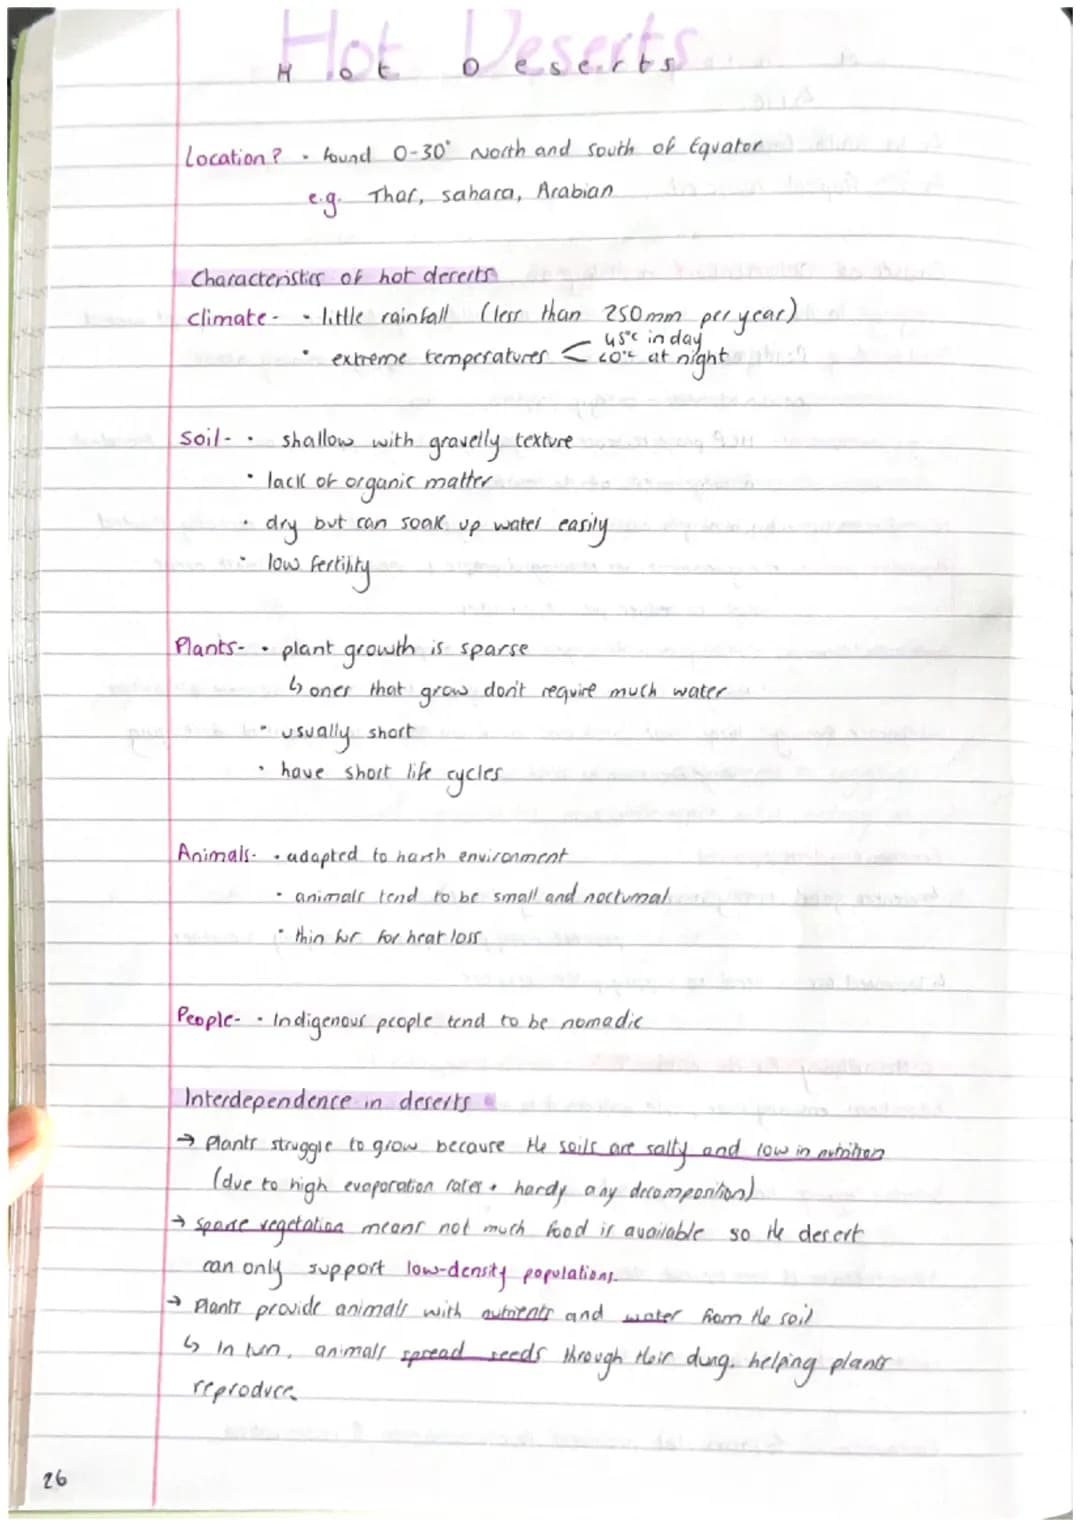 Hot Deserts
Hot Deserts
Location? • found 0-30° North and south of Equator
e.g. Thar, sahara, Arabian
Characteristics of hot deserts
Climate - • little rainfall (less than 250mm per year)
45°c in day
• extreme temperatures < <0°c at night
Soil - • shallow with gravelly texture
• lack of organic matter
• dry but can soak up water easily
• low fertility
Plants - • plant growth is sparse
↳ ones that grow don't require much water
• usually short
• have short life cycles
Animals - • adapted to harsh environment
• animals tend to be small and nocturnal
• thin fur for heat loss
People - • Indigenous people tend to be nomadic
Interdependence in deserts
→ Plants struggle to grow because the soils are salty and low in nutrition
(due to high evaporation rates + hardy any decomposition)
→ sparse vegetation means not much food is available so the desert
can only support low-density populations.
→ Plants provide animals with nutrients and water from the soil
↳ In turn, animals spread seeds through their dung, helping plants
reproduce
26